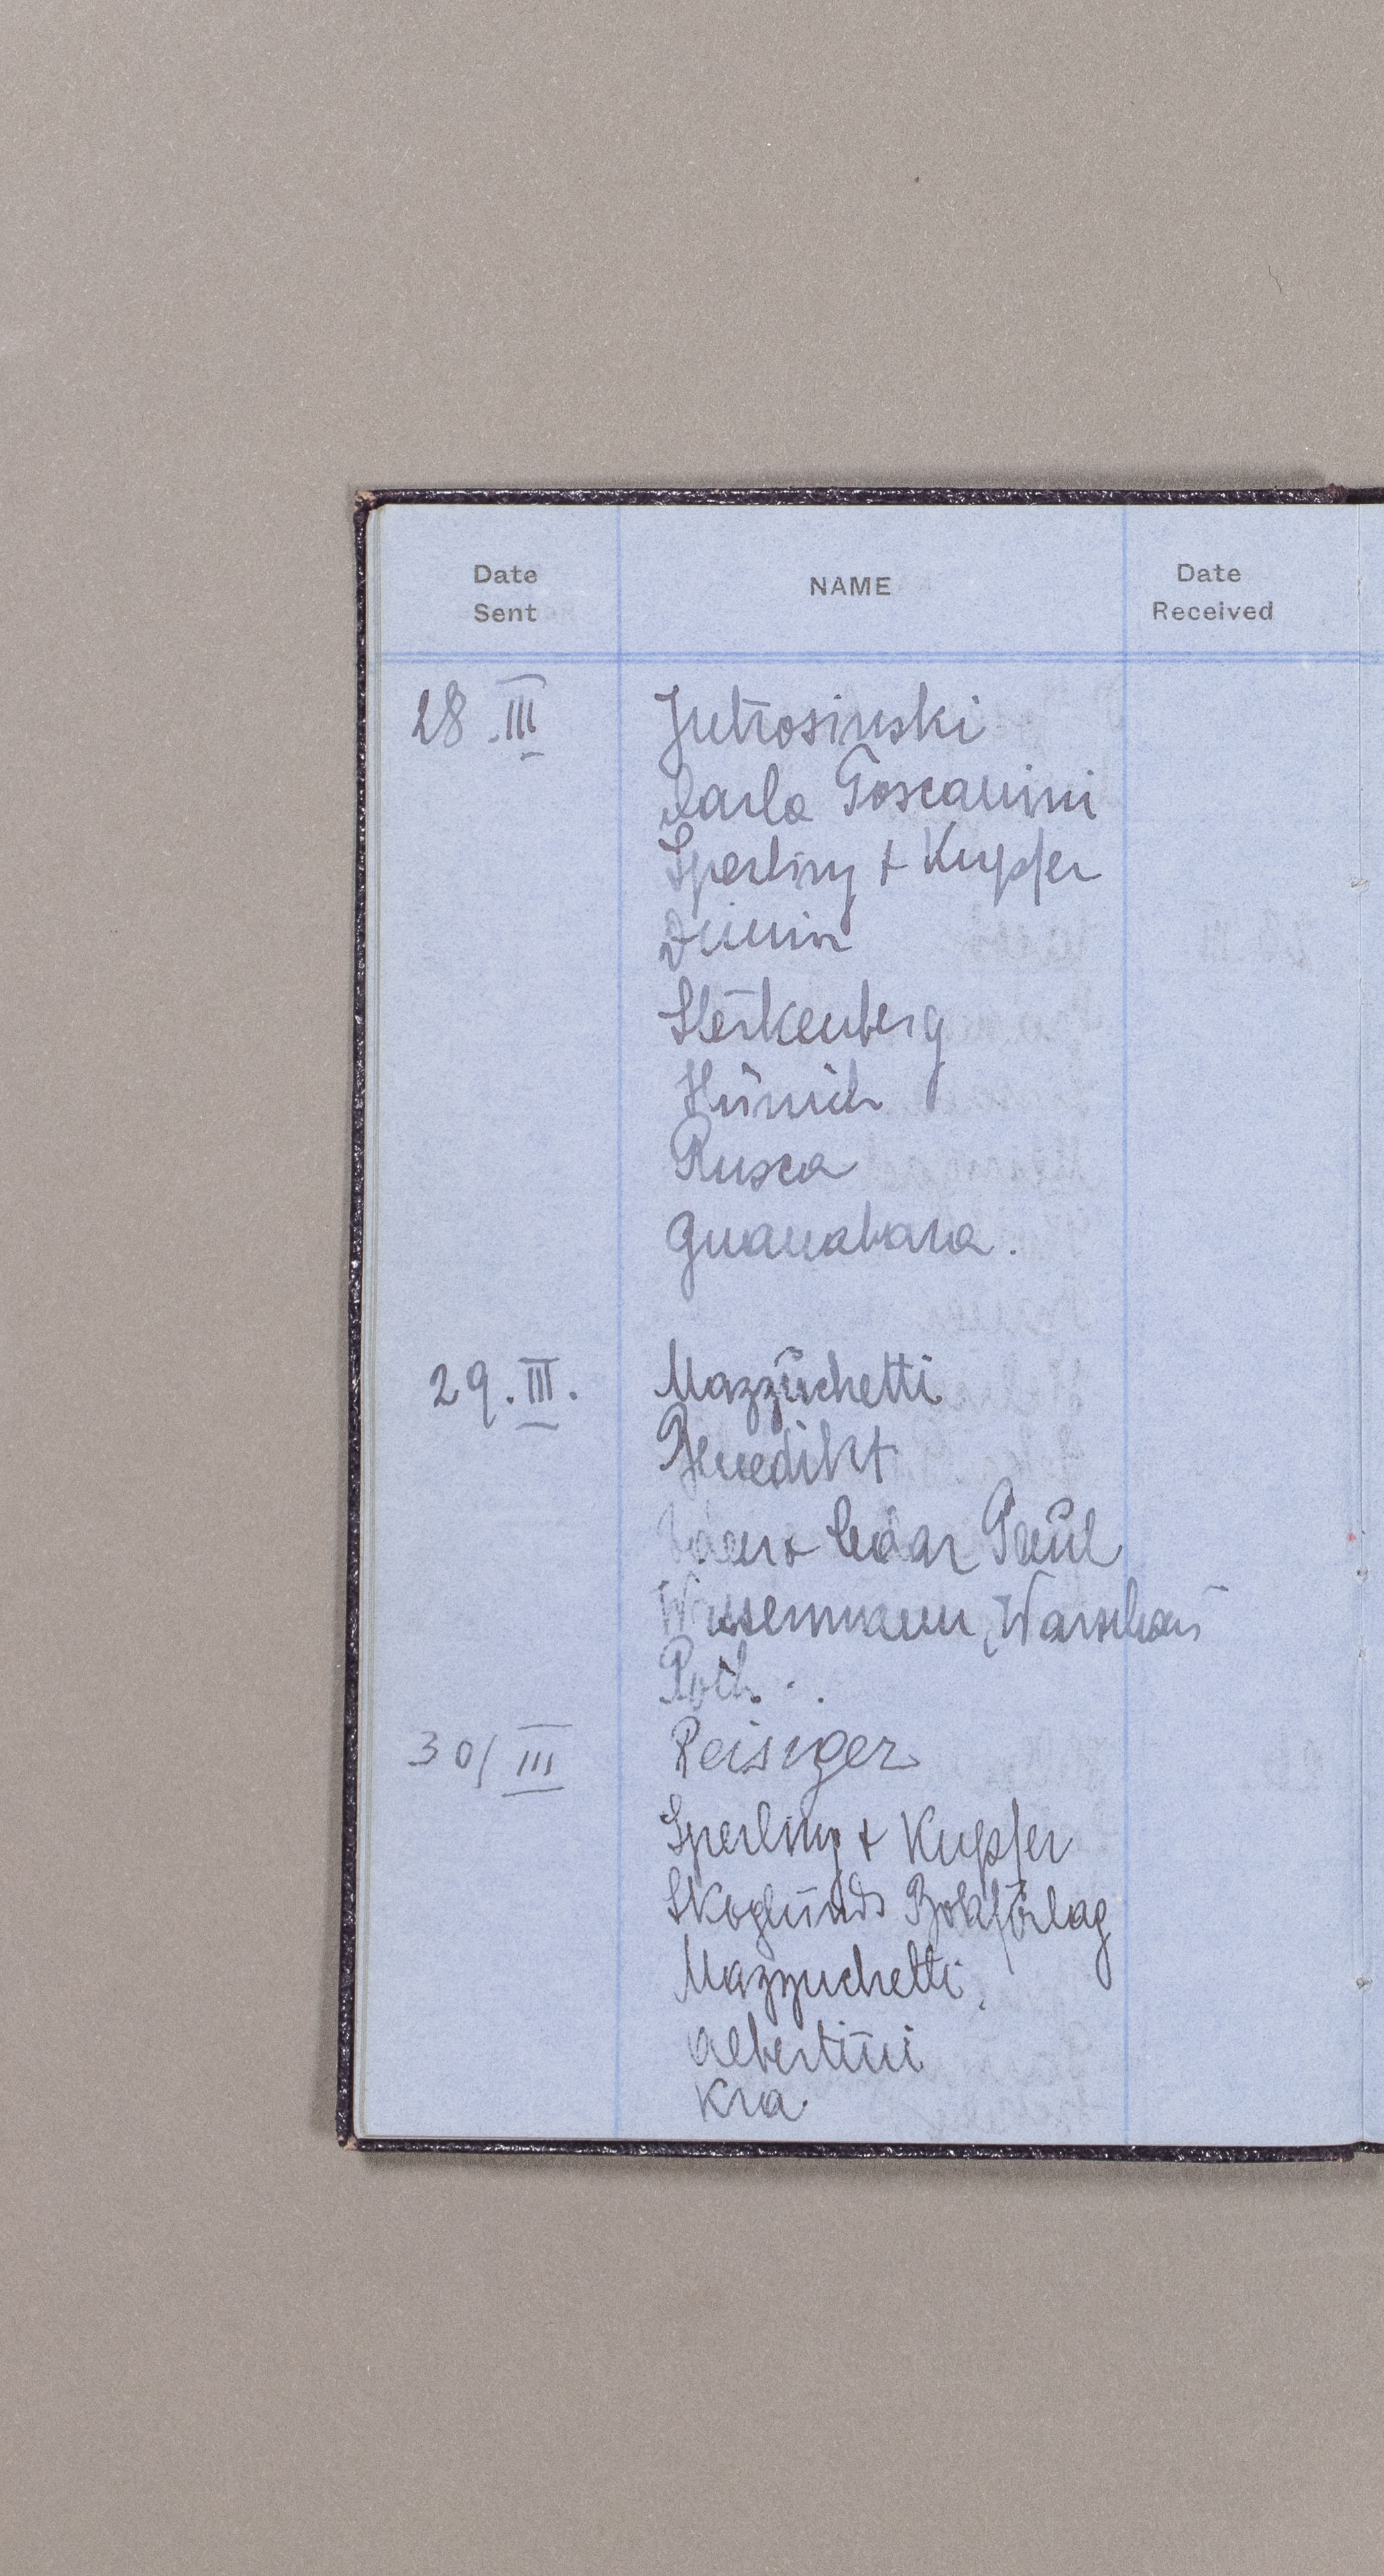 Date Sent NAME Date Received
28.III Jutrosinski
Carla Toscanini
Sperling + Kupfer
Sterkenberg
Hünich
Rusca
Guanabara.
29.III. Mazzuchetti
Benedikt
Cedar Paul
Wassermann, Warschau
Roth
30/III Reisiger
Sperling + Kupfer
Skoglunds Bokförlag
Mazzuchetti
Albertini
Kra